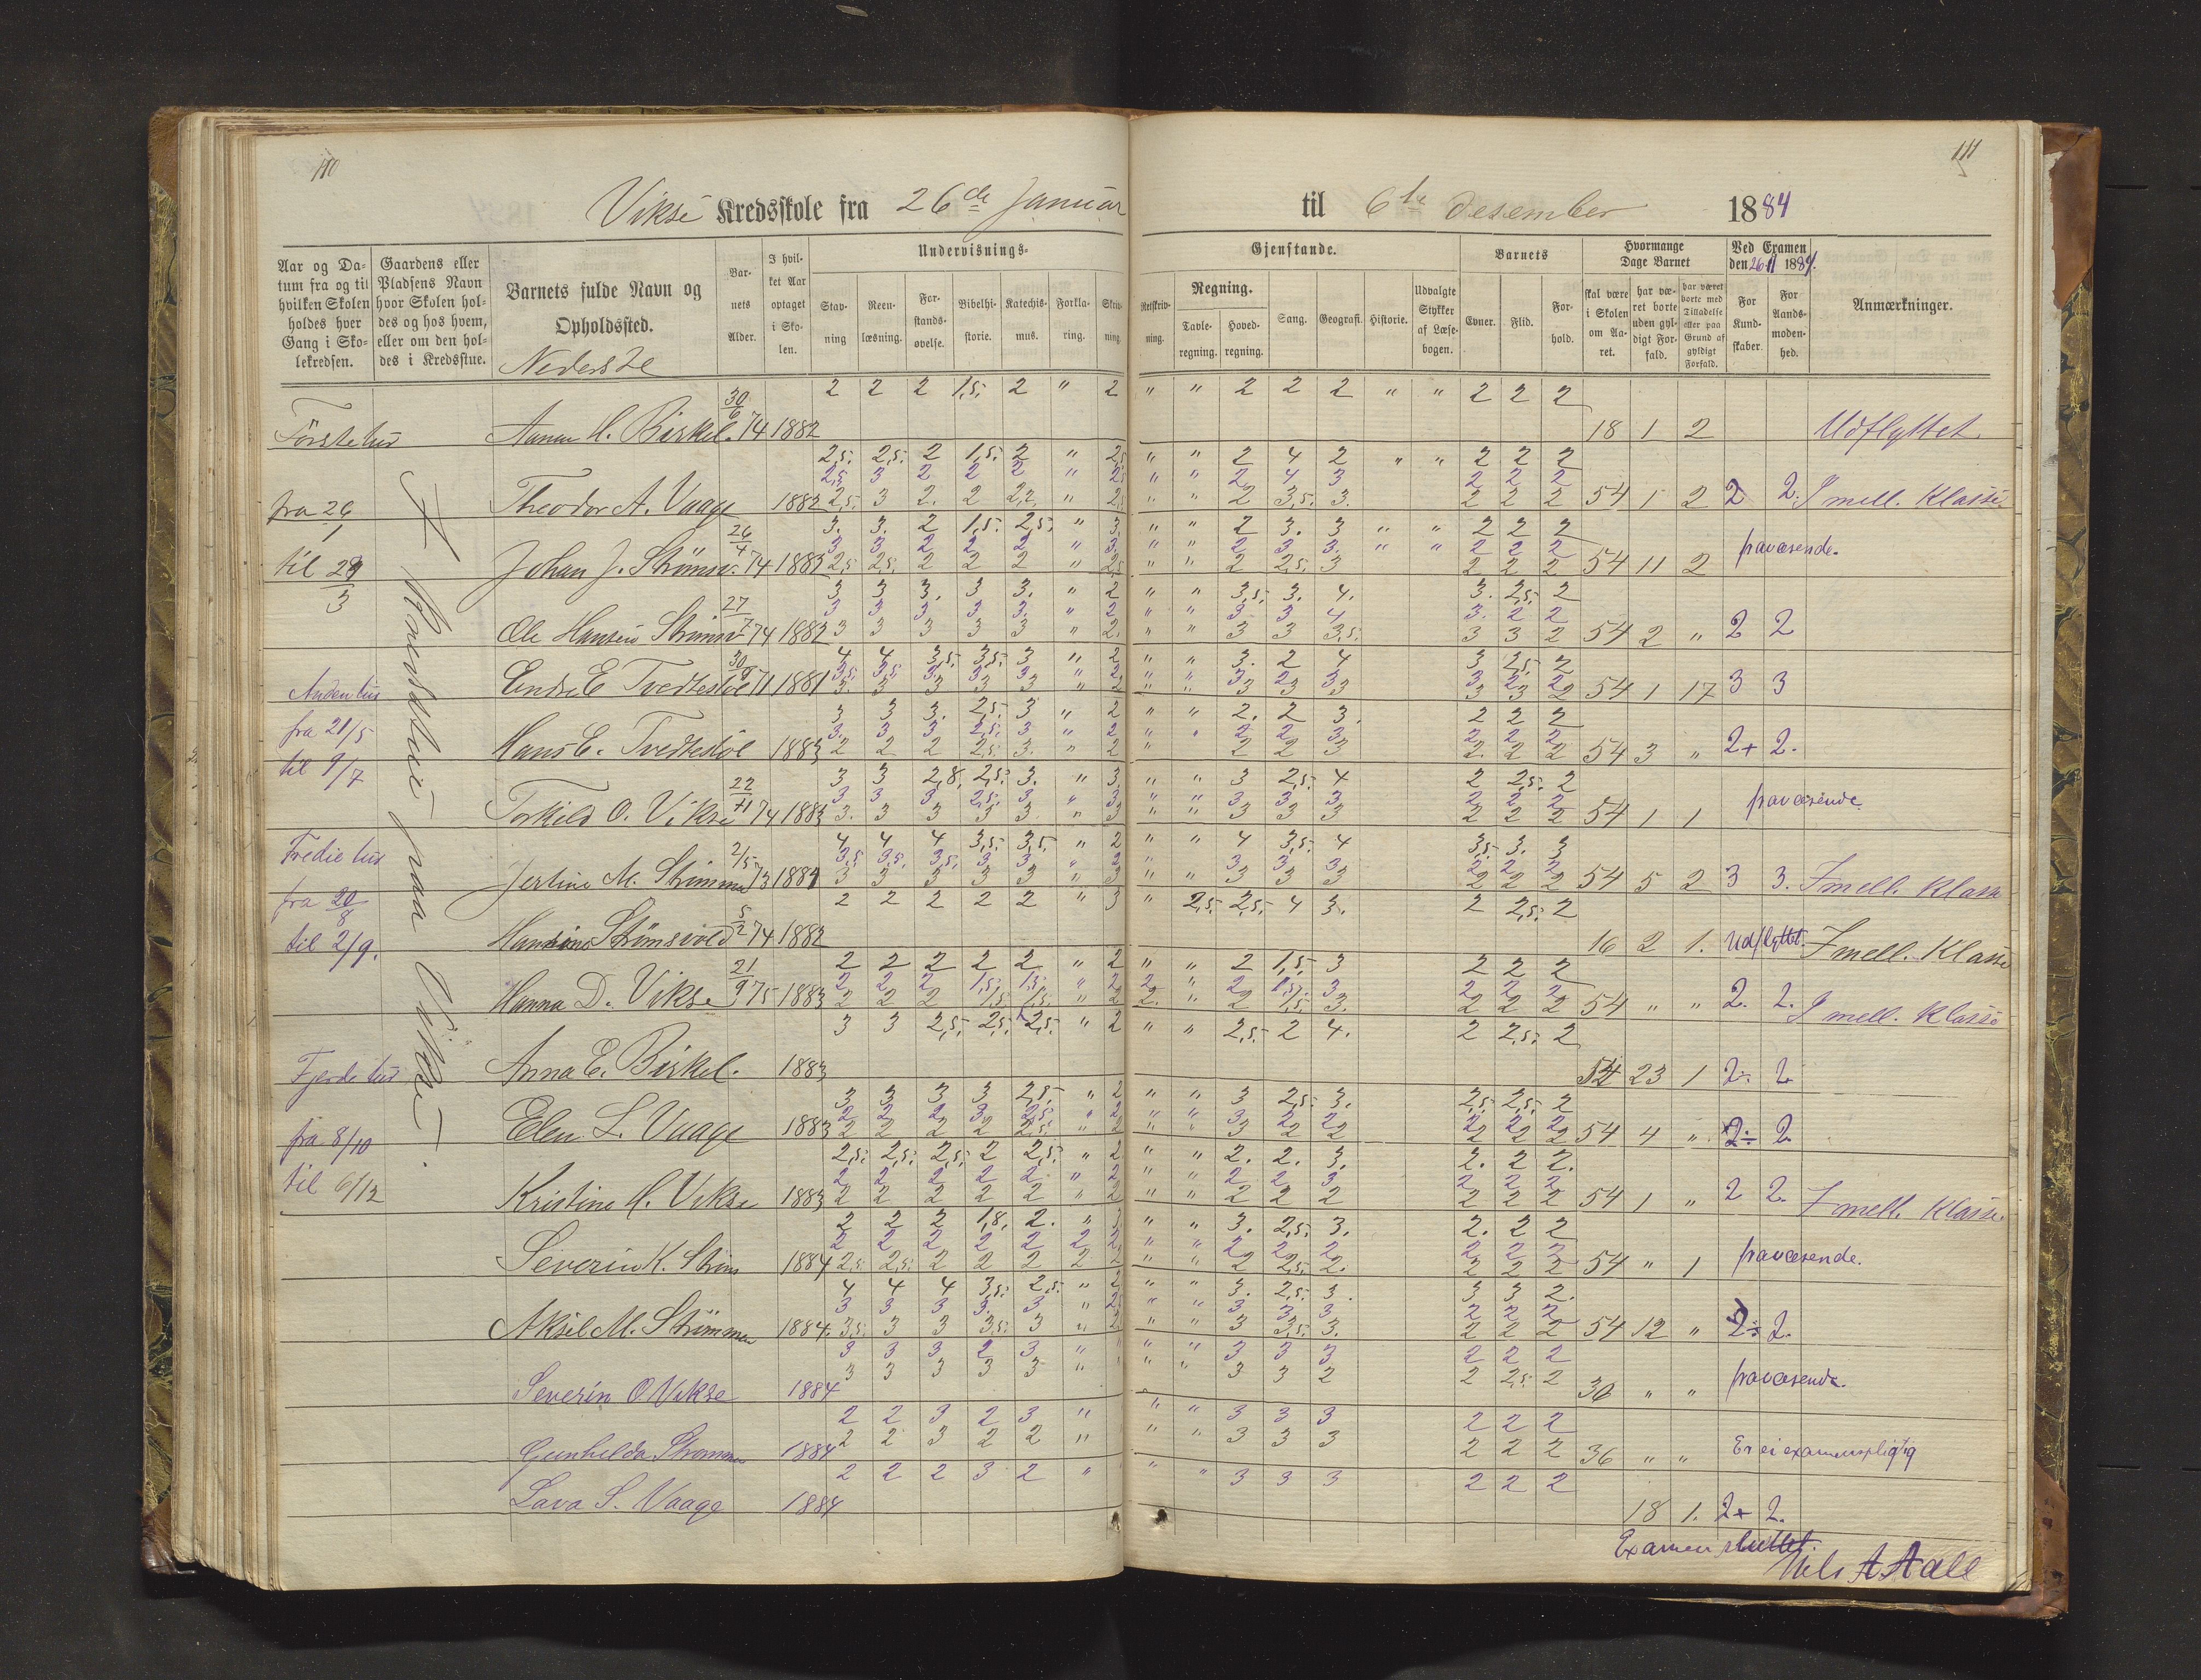 110
111
Vikse Kredsskole fra 26de Januar til 6te desember 1884
Aar og Datum fra og til hvilken Skolen holdes hver Gang i Skolekredsen.
Gaardens eller Pladsens Navn hvor Skolen holdes og hos hvem, eller om den holdes i Kredsstue.
Barnets fulde Navn og Opholdssted.
Nederste
Barnets Alder.
I hvilket Aar optaget i Skolen.
Undervisnings- Gjenstande.
Stavning
Reenlæsning.
Forstandsøvelse.
Bibelhistorie.
Katechismus.
Forklaring.
Skrivning.
Retskrivning.
Regning.
Tavleregning.
Hovedregning.
Sang.
Geografi.
Historie.
Udvalgte Stykker af Læsebogen.
Barnets
Evner.
Flid.
Forhold.
Hvormange Dage Barnet
skal være i Skolen om Aaret.
har været borte uden gyldigt Forfald.
har været borte med Tilladelse eller paa Grund af gyldigt Forfald.
Ved Examen den 26.11 1884.
For Kundskaber.
For Aandsmodenhed.
Anmærkninger.
2 2 2 1,5. 2 " 2 " " 2 2 2 " " 2 2 2
Anna H. Birkel. 30/6 74 1882 18 1 2 Udflyttet
2,5. 2,5. 2 1,5. 2 " 2,5 " " 2 4 2 " " 2 2 2
2,5 3 2 2 2 " 2,5 " " 2 4 3 2 2 2
Theodor A. Vaage 1882 2,5. 3 2. 2 2,2 " 2,5 " " 2 3,5. 3. 2 2 2 54 1 2 2 2. I mell. Klasse
3. 3. 2 1,5. 2,5. " 3 " " 2 3. 3 " " 2 2 2
3 3 2 2 2 " 3. " " 2 3 3. " " 2 2 2
Johan J. Strömsv. 26/4 74 1882 2,5 2,5. 2 2 2 " 2,5 " " 2 2,5. 3 2 2 2 54 11 2 fraværende.
3 3 3. 3 3. " 2 " " 3,5. 3. 4. 3. 2,5. 2
3 3 3 3 3. " 2 " " 3 3 4 3. 2 2
Ole Hansen Strömsv 27/7 74 1882 3 3 3 3 3 " 2. " " 3 3 3,5. 3 3 2 54 2 " 2 2
4 4 3,5. 3,5. 3 " 2 " " 3. 2 4 3 2,5. 2
Endre E Tvedtesdöl 30/9 71 1881 3. 3 3 3 3 " 2 " " 3 3 3 3 3 2 54 1 17 3 3
3 3 3. 2,5. 3 " 2 " " 2. 2 3. 2 2 2
3. 3 3 2,5. 3 " 2 " " 2 2 3 2 2 2
Hans E. Tvedtesdöl 1883 2 2 2 2,5. 3. " 2 " 2 2 3 2. 2 2 54 3 " 2+ 2.
3 3 2,8. 2,5. 3. " 3. " " 3 2,5. 4 2 2,5. 2
3 3 3 2,5. 3 " 3. " " 3 3 3 2 2 2
Torkild O. Vikse 22/11 74 1883 3. 3 3 3 3 " 3 " " 3 3 3 2 2 2 54 1 1 fraværende.
4 4 4 3,5. 3,5. " 2 " " 4 3,5. 4 3,5. 3. 3
3,5 3,5. 3,5. 3 3 " 3 " 3 3 3 2 2 2
Jertine M. Strömme 2/5 73 1881 3 3 3 3 3 " 3 " " 3 3 3 2 2 2 54 5 2 3 3. I mell. Klasse
2 2 2 2 2 " 3 " 2,5. 2,5. 4 3. 2 2,5. 2
Hansine Strömsvold 5/2 74 1882 16 2 1. Udflyttet. I mell. Klasse
2 2 2 2 2 " 2 " " 2 1,5. 3 2 2 2
2 2 2 1,5. 1,5. " 2 2 " 2 1,5. 3 2 2 2
Hanna D. Vikse 21/9 75 1883 2 2 2 1,5. 1,5. " 2 2. " 2 1,5. 3. 2 2 2 54 " " 2. 2. I mell. Klasse
3 3 2,5. 2,5. 2,5. " 2 " " 2,5. 2 4. 2 2,5. 2
Anna E. Birkel. 1883 54 23 1 2÷ 2
3 3 3 3 2,5. " 2 " " 3 2,5. 3. 2,5. 2,5. 2
2 2 2 3 2,5. " 2 " " 3 2 2 2 2 2
Elen L. Vaage 1883 2 2 2 2 2,5. " 2 " " 3 2 2 2 2 2 54 4 " 2÷ 2
2,5. 2,5. 2,5. 2 2,5. " 2 " " 2. 2. 3. 2. 2 2.
2 2 2 2 2 " 2 " " 2 2 3 2 2 2
Kristine H. Vikse 1883 2 2 2 2 2 " 2 " " 2 2 2 2 2 2 54 1 " 2 2. I mell. Klasse.
2 2 2 1,8. 2. " 3. " " 3. 2,5. 3. 2. 2 2
2 2 2 2 2 2 2 " " 2 2 2 2 2 2
Severin K. Ström 1884 2,5. 2,5. 2 2 2 2 2 " " 2 2,5. 2. 2 2 2 54 " 1 fraværende.
4 4 4 3,5. 2,5. " 2 " " 3. 2,5. 3. 3 3 2.
3 3 3 3. 3 " 2,5 " " 3 3 3 2 2 2
Aksel M. Strömmen 1884. 3,5. 3 3 3,5. 3 " 2 " " 3 3,5. 3. 2 2 2 54 12 " 2÷ 2.
3 3 3 2 3 " " " " 3 3 3 2 2 2
3 3 3 3 3 " " " 3 3 2 2 2,5. 2
Severin O Vikse 1884 36 " " fraværende.
2 2 3 2 3 " " " 3 3 3 2 2 2
Gunhilda Strömmen 1884 2 2 3 2 2 " " " 3 3 3 2 2 2 36 " " Er ei examenspligtig
2 2 2 3 2 " " " 3 3 3 2 2 2
Lava S. Vaage 1884 18 1. 2+ 2.
Förstetur
fra 26/1
til 29/3
Andentur
fra 21/5
til 9/7
Tredietur
fra 20/8
til 2/9.
Fjerdetur
fra 8/10
til 6/12
paa Vikse.
Examen sluttet.
Nels A Aall